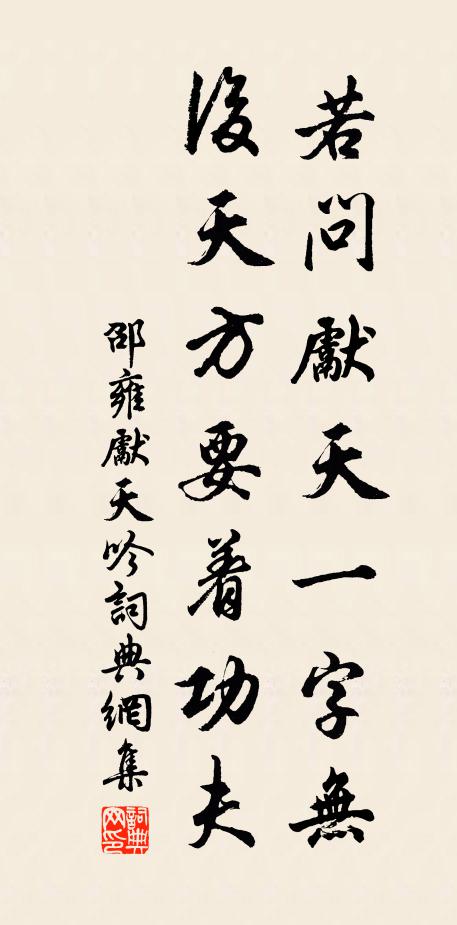 若問獻天一字無
後天方要着功夫
邵雍獻天吟詞典網集
詞典網印